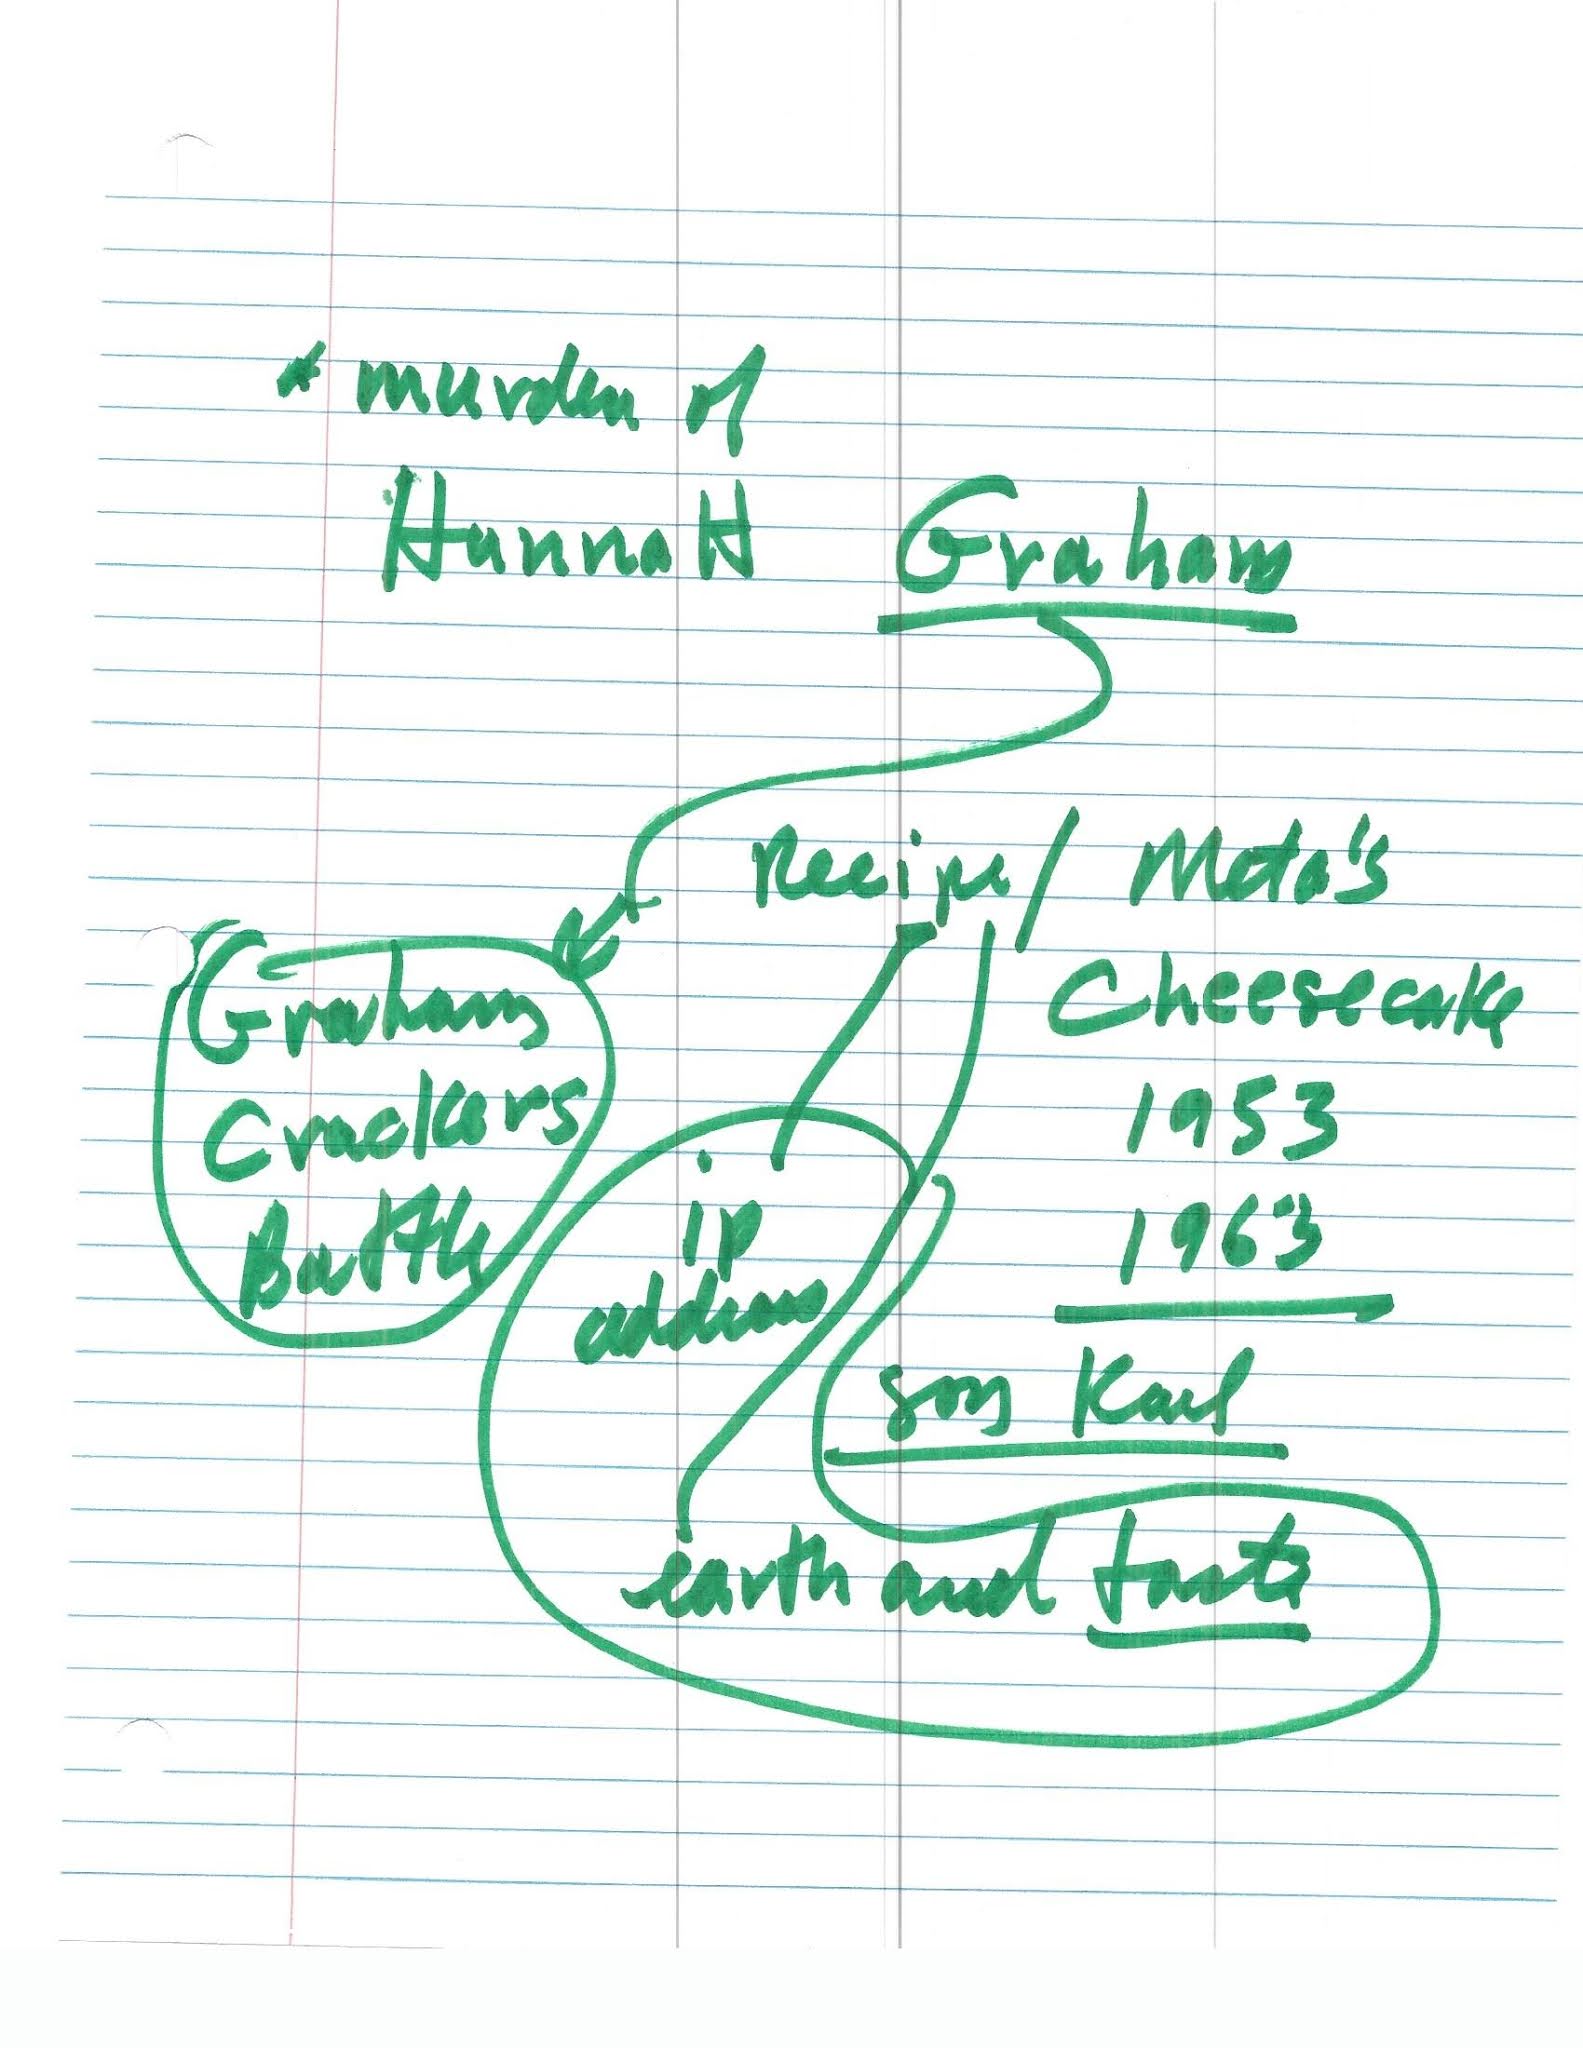 * murder of
HannaH Graham
Recipe / Meta's
Cheesecake
1953
1963
Graham
Crackers
ip
address
son Karl
earth and taste